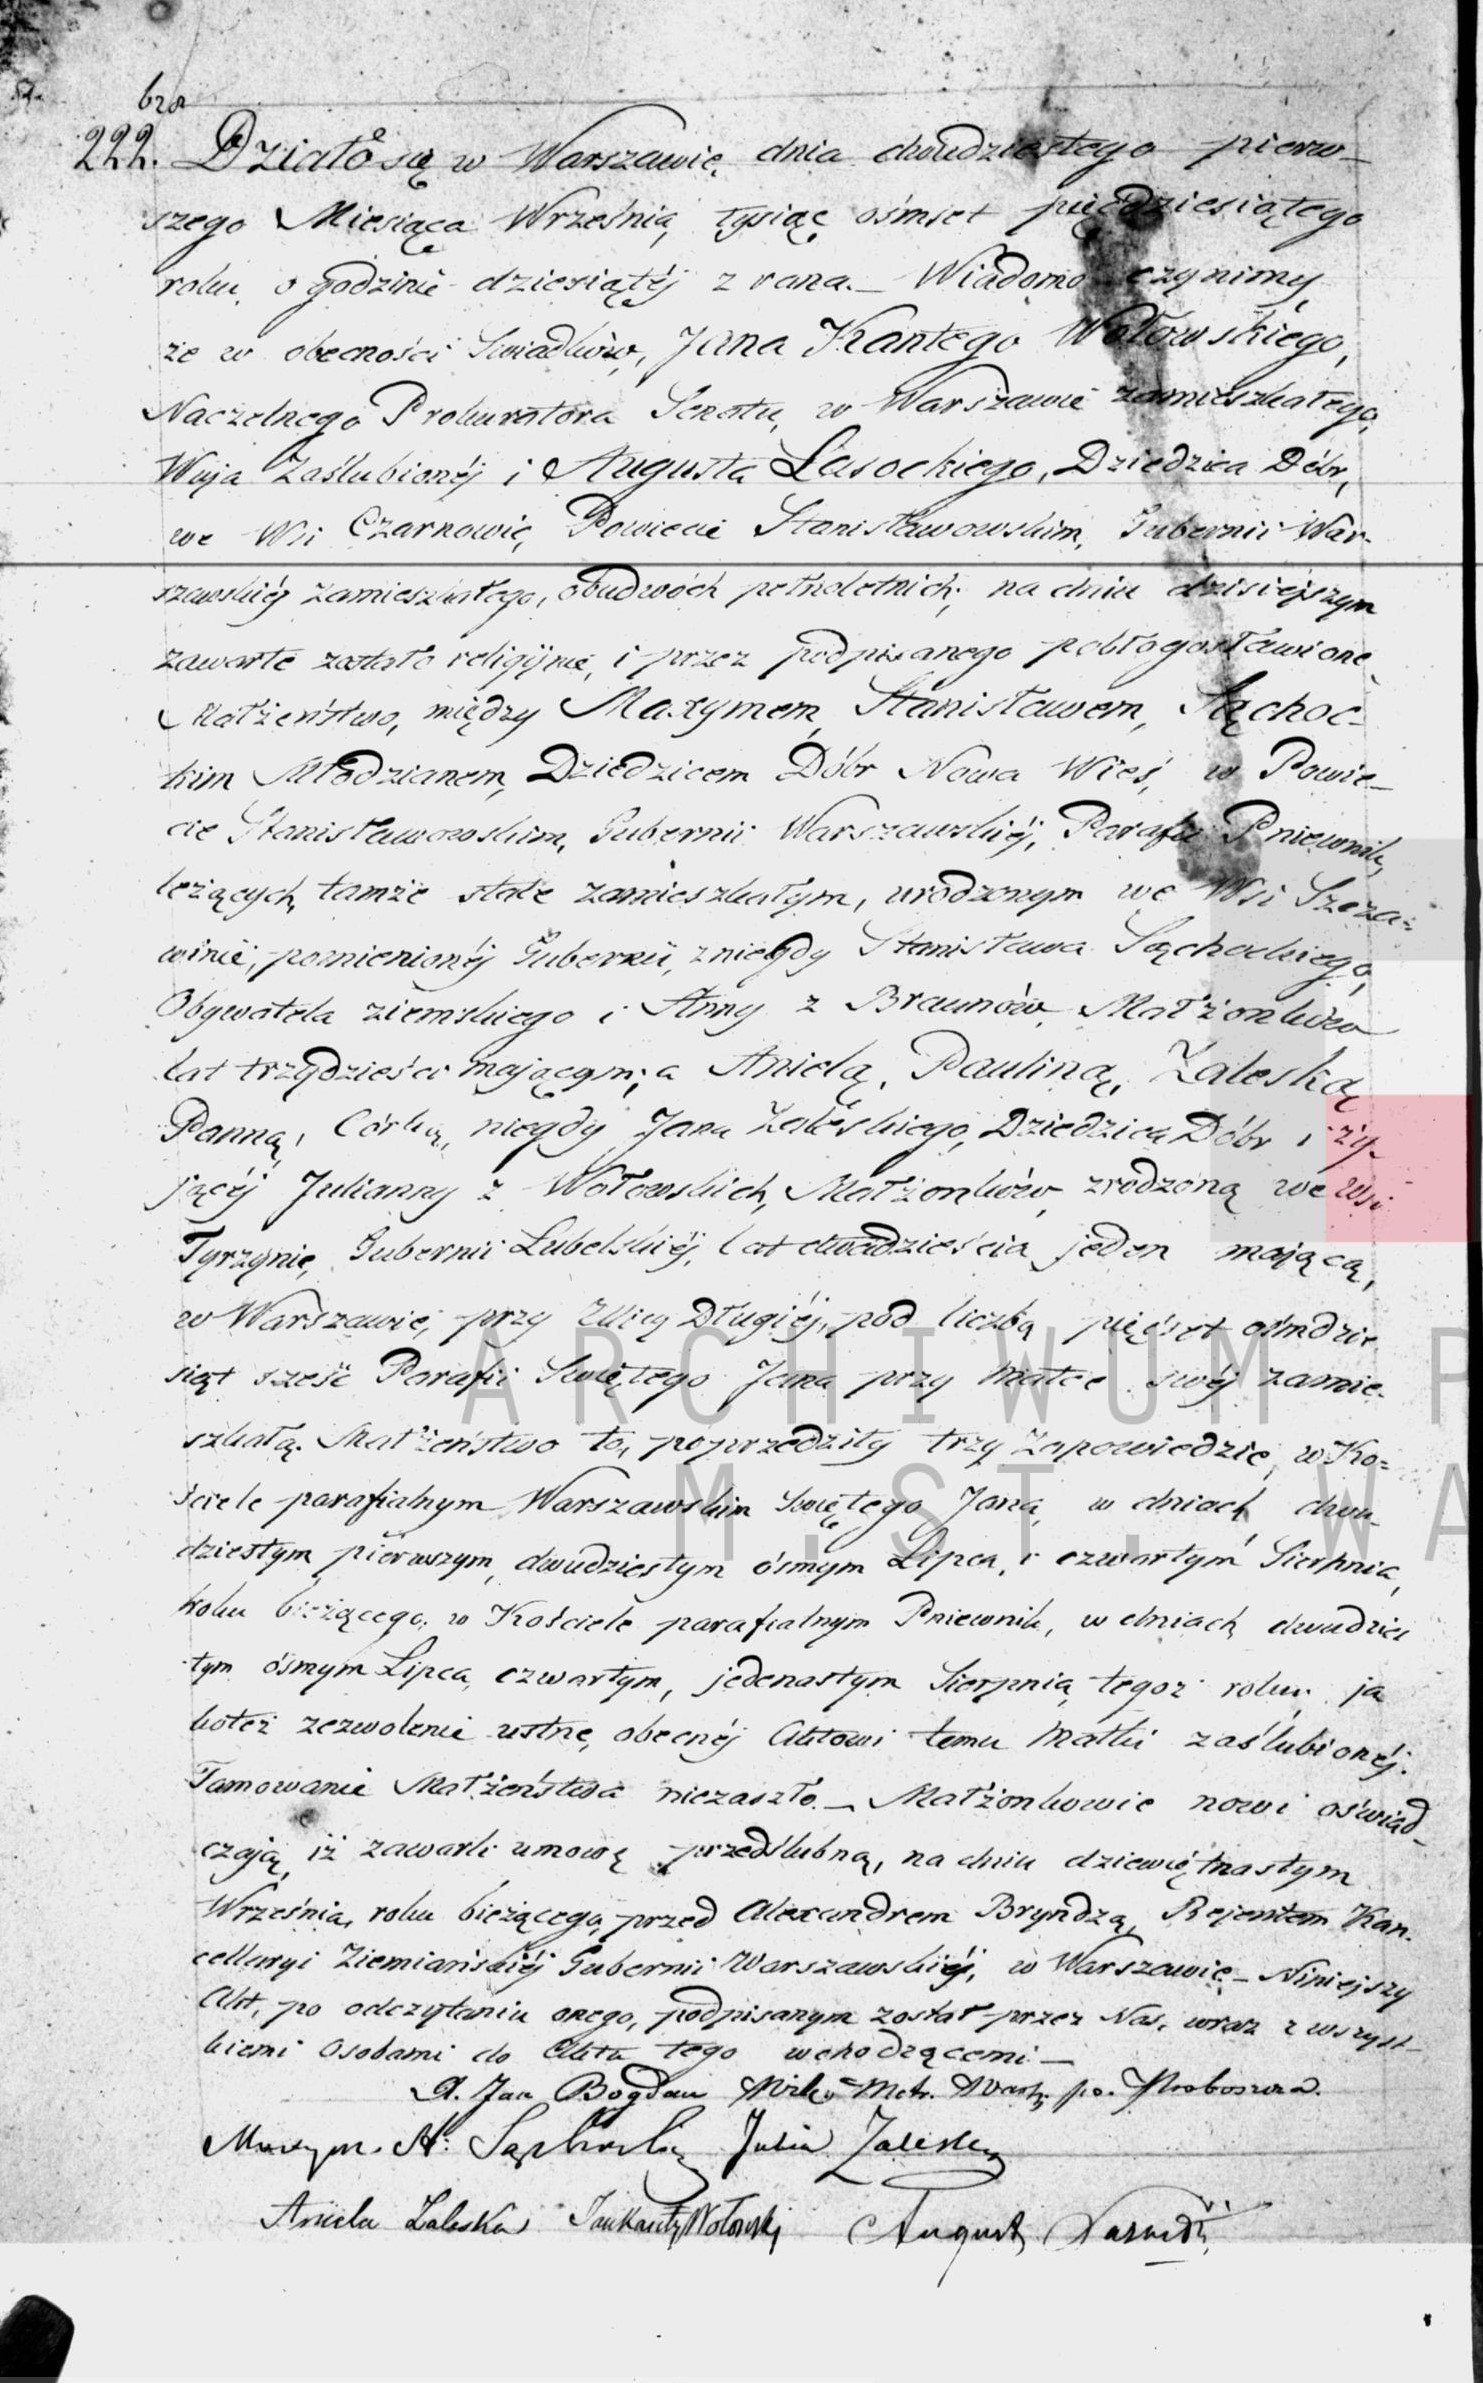 222. Działo się w Warszawie, dnia dwudziestego pierw-
szego Miesiąca Września, tysiąc ośmset pięćdziesiątego
roku, o godzinie dziesiątéj z rana. – Wiadomo czynimy,
że w obecności Swiadków, Jana Kantego Wołowskiego,
Naczelnego Prokuratora Senatu, w Warszawie zamieszkałego,
Wuja Zaślubionéj i Augusta Lasockiego, Dziedzica Dóbr,
we Wsi Czarnowie, Powiecie Stanisławowskim, Gubernii War-
szawskiéj zamieszkałego, obudwóch pełnoletnich; na dniu dzisiéjszym
zawarte zostało religijnie, i przez podpisanego pobłogosławione
Małżeństwo, między Maxymem, Stanisławem, Sąchoc-
kim Młodzianem, Dziedzicem Dóbr Nowa Wieś, w Powie-
cie Stanisławowskim, Gubernii Warszawskiéj, Parafii Pniewnik,
leżących, tamże stale zamieszkałym, urodzonym we Wsi Szcza-
winie, pomienionéj Gubernii, z niegdy Stanisława Sąchockiego,
Obywatela ziemskiego i Anny z Braunów, Małżonków
lat trzydzieści mającym; a Anielą, Pauliną, Zaleską
Panną, Córką, niegdy Jana Zaleskiego, Dziedzica Dóbr i ży-
jącéj Julianny z Wołowskich, Małżonków, zrodzoną we Wsi
Tyrzynie, Gubernii Lubelskiéj, lat dwadzieścia jeden mającą,
w Warszawie, przy Ulicy Długiéj, pod liczbą pięćset ośmdzie
siąt sześć Parafii Swiętego Jana przy Matce swéj zamie-
szkałą. Małżeństwo to, poprzedziły trzy Zapowiedzie, w Ko=
ściele parafialnym Warszawskim Swiętego Jana, w dniach dwu-
dziestym pierwszym, dwudziestym ósmym Lipca, i czwartym Sierpnia,
Roku bieżącego, w Kościele parafialnym Pniewnik, w dniach dwudzies
tym ósmym Lipca, czwartym, jedenastym Sierpnia, tegoż roku; ja
koteż zezwolenie ustne, obecnéj Aktowi temu Matki zaślubionéj.
Tamowanie Małżeństwa niezaszło. – Małżonkowie nowi oświad-
czają, iż zawarli umowę przedślubną, na dniu dziewiętnastym
Września, roku bieżącego, przed Alexandrem Bryndzą, Rejentem Kan-
cellaryi Ziemiańskiéj Gubernii Warszawskiéj, w Warszawie – Niniejszy
Akt, po odczytaniu onego, podpisanym został przez Nas, wraz z wszyst-
kiemi Osobami do Aktu tego wchodzącemi –
X. Jan Bogdan Metr. Warsz. po. Proboszcza.
Maxym. St: Sąchocki Julia Zaleska
Aniela Zaleska Jan Kanty Wołowski August Lasocki
ARCHIWUM P
M. ST. WA